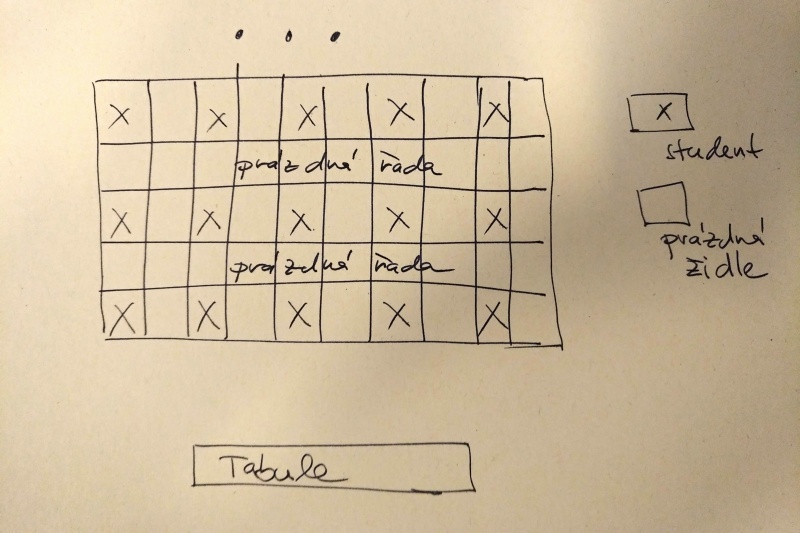 • • •
X X X X X
prázdná řada
X X X X X
prázdná řada
X X X X X
Tabule
X
student
prázdná
židle